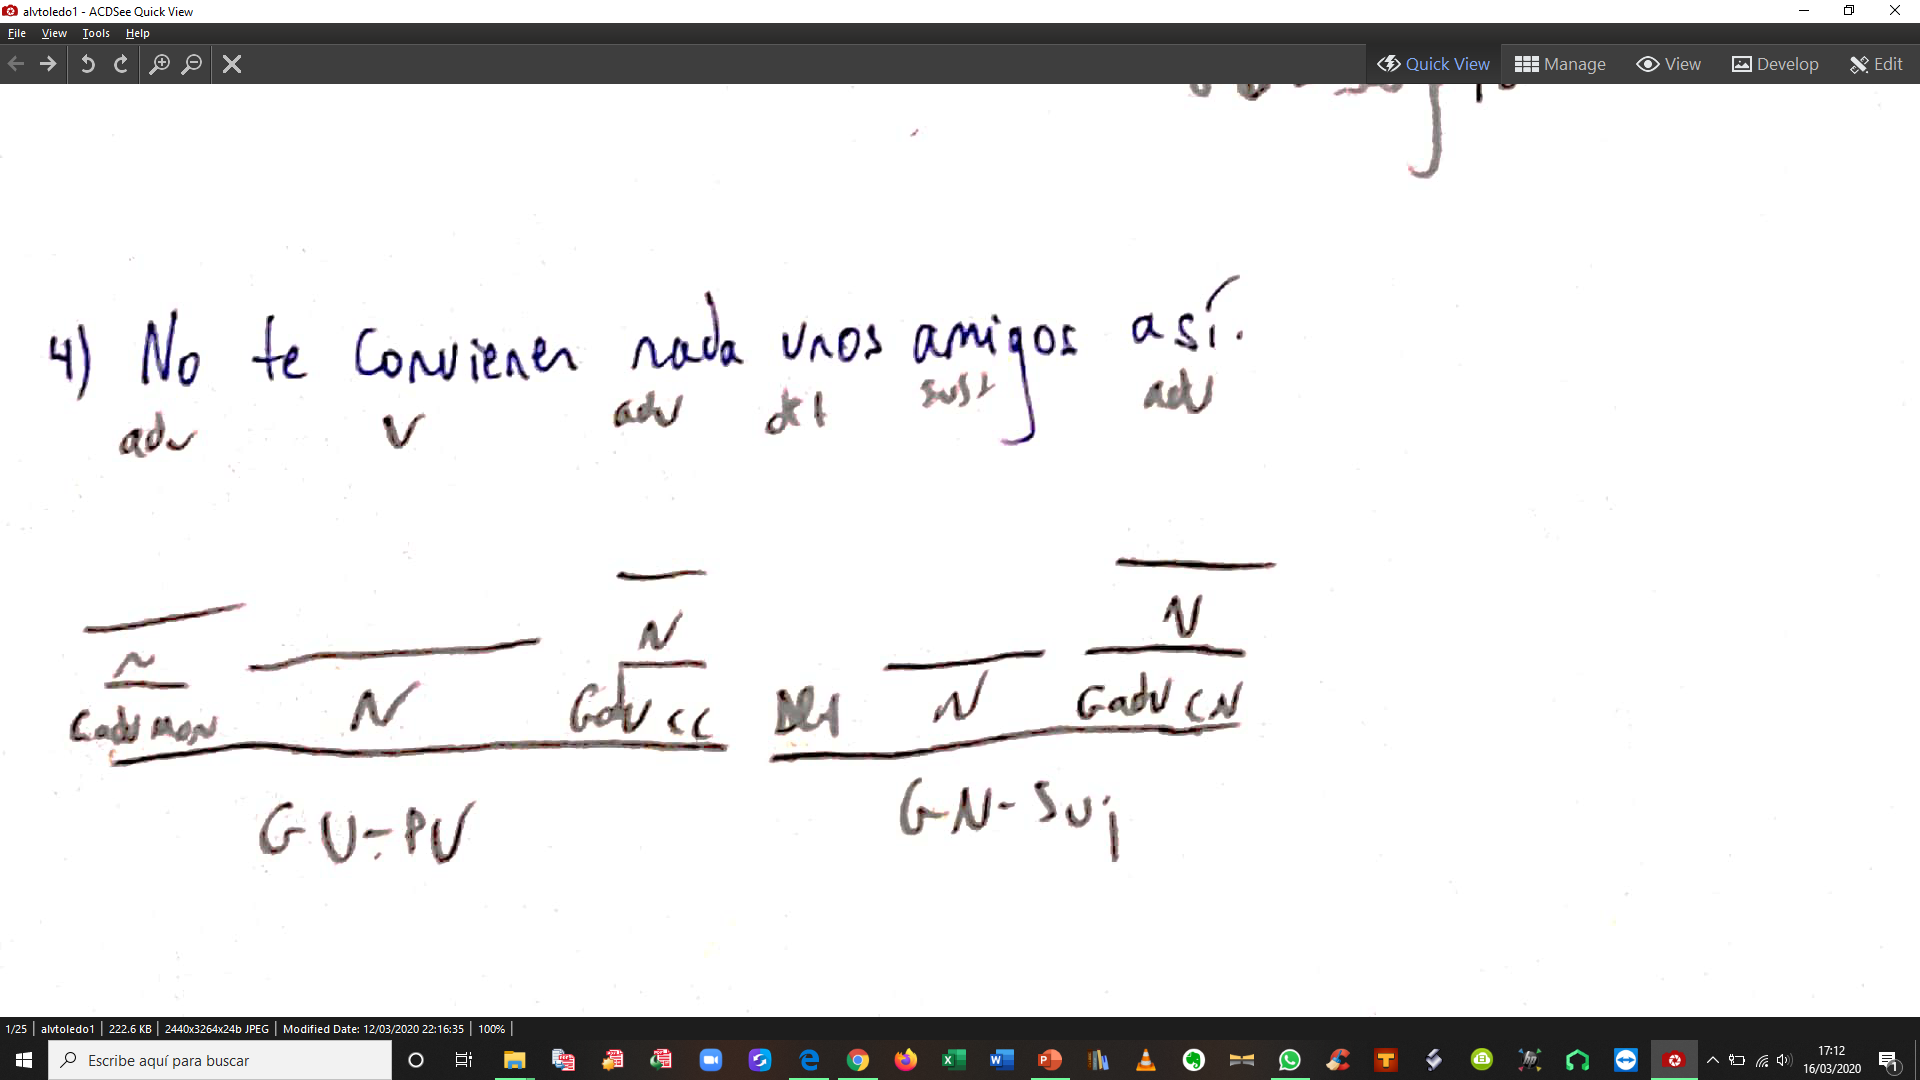 alvtoledo1 - ACDSee Quick View
File View Tools Help
Quick View Manage View Develop Edit
4) No te convienen nada unos amigos así.
adv V adv det sust adv
N N
N N N
Gadv MON Gadv CC Det Gadv CN
GV-PV GN-Suj
1/25 alvtoledo1 222.6 KB 2440x3264x24b JPEG Modified Date: 12/03/2020 22:16:35 100%
Escribe aquí para buscar
17:12
16/03/2020
1